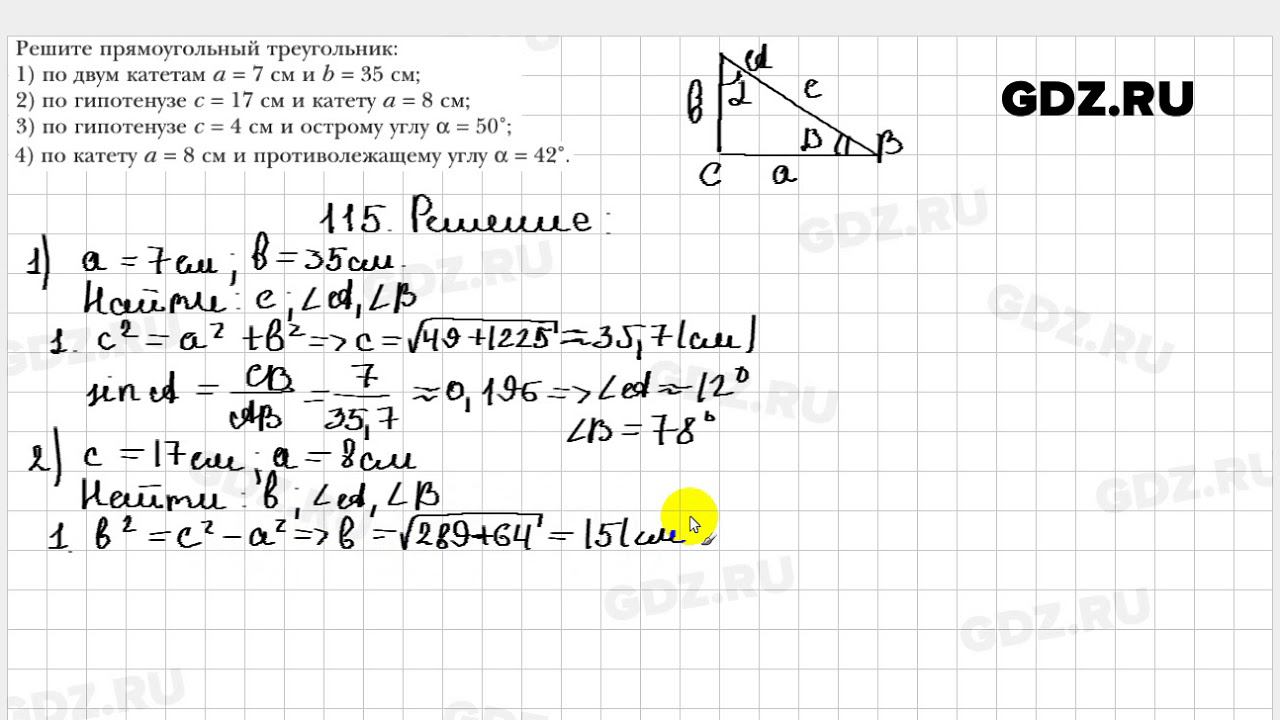 Решите прямоугольный треугольник:
1) по двум катетам a = 7 см и b = 35 см;
2) по гипотенузе c = 17 см и катету a = 8 см;
3) по гипотенузе c = 4 см и острому углу α = 50°;
4) по катету a = 8 см и противолежащему углу α = 42°.
A
α
b
c
β
B
C
a
GDZ.RU
115. Решение:
1) a = 7см; b = 35см.
Найти: c; ∠A, ∠B
1. c² = a² + b² => c = √49+1225 ≈ 35,7(см)
sin A = CB/AB = 7/35,7 ≈ 0,196 => ∠A ≈ 12°
∠B = 78°
2) c = 17см; a = 8см
Найти: b; ∠A, ∠B
1. b² = c² - a² => b = √289+64 = 15(см
GDZ.RU
GDZ.RU
GDZ.RU
GDZ.RU
GDZ.RU
GDZ.RU
GDZ.RU
GDZ.RU
GDZ.RU